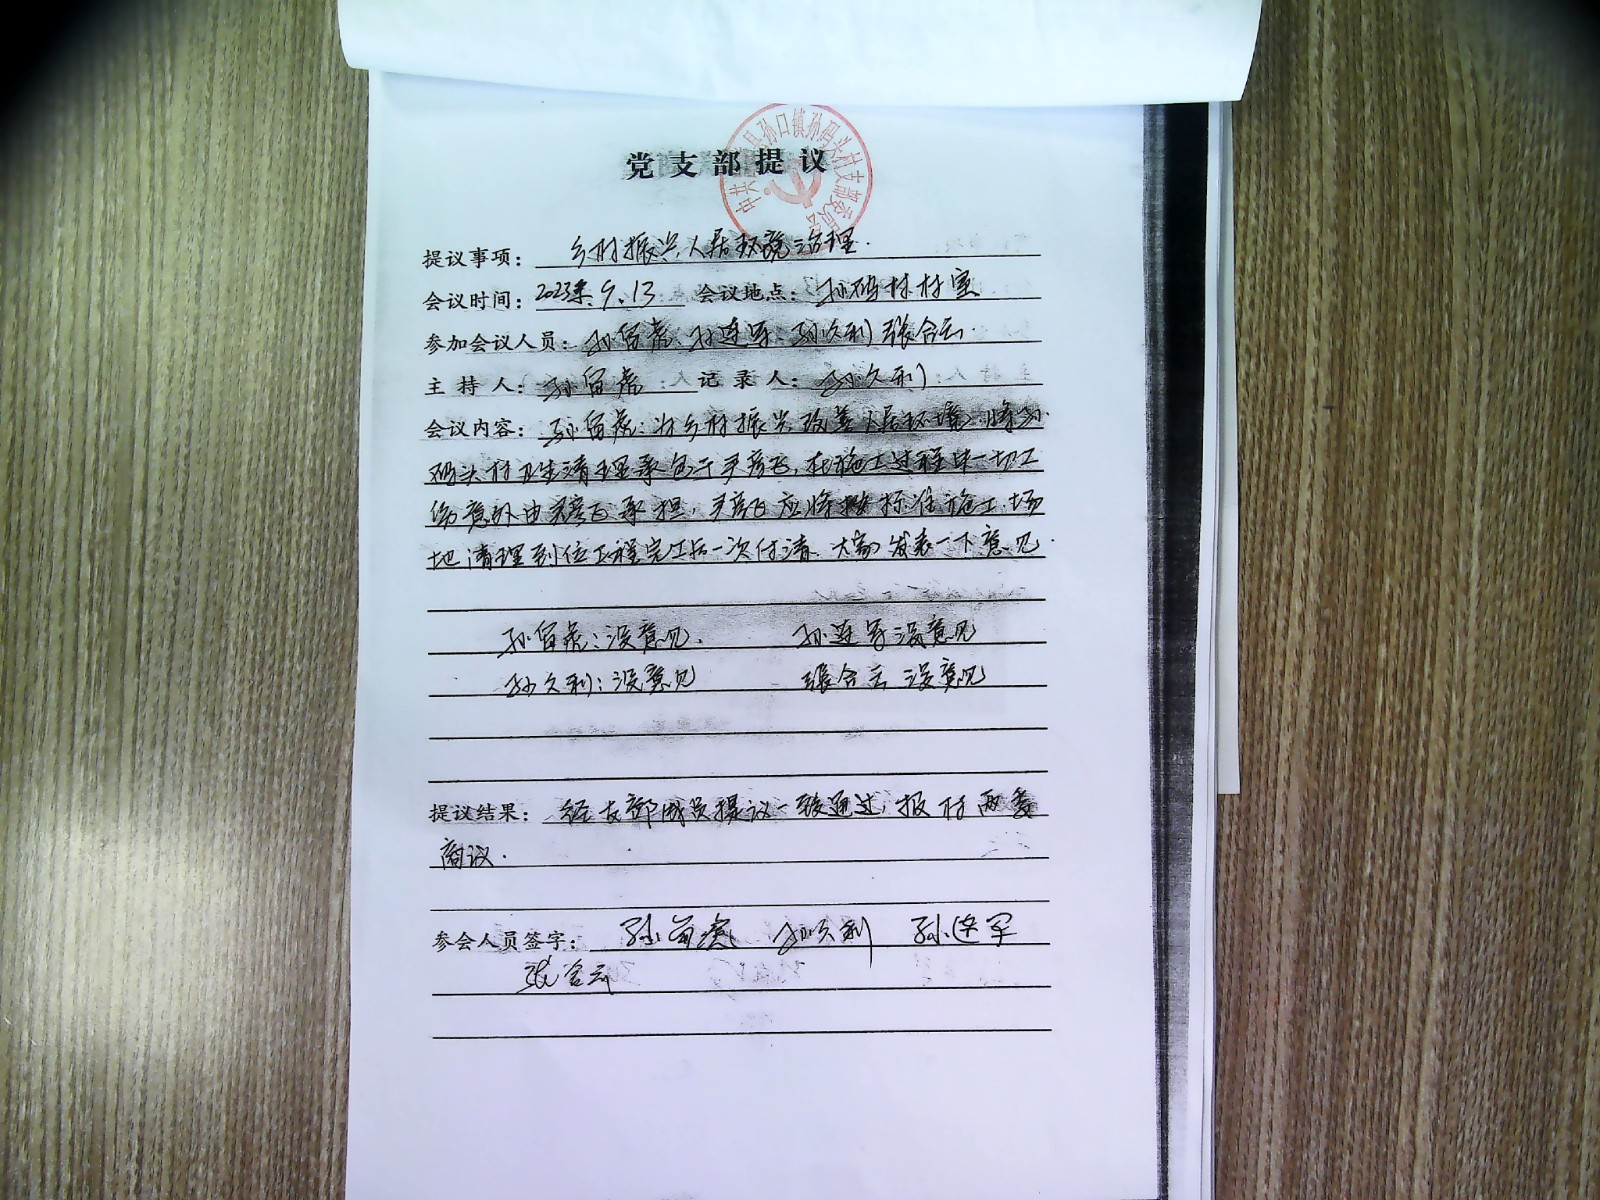 党支部提议
孙口镇孙码头村支部委员会
提议事项：乡村振兴，人居环境治理.
会议时间：2023年.9.13 会议地点：孙码村村室
参加会议人员：孙留虎、孙连军、孙久利 张合云.
主持人：孙留虎 记录人：孙久利
会议内容：孙留虎：为乡村振兴改善人居环境，将孙
码头村卫生清理承包于尹彦飞，在施工过程中一切工
伤意外由尹彦飞承担，尹彦飞应将按标准施工.场
地清理到位工程完工后一次付清、大家发表一下意见.
孙留虎：没意见. 孙连军没意见
孙久利：没意见 张合云 没意见
提议结果：经支部成员提议一致通过，报村两委
商议.
参会人员签字：孙留虎 孙久利 孙连军
张合云